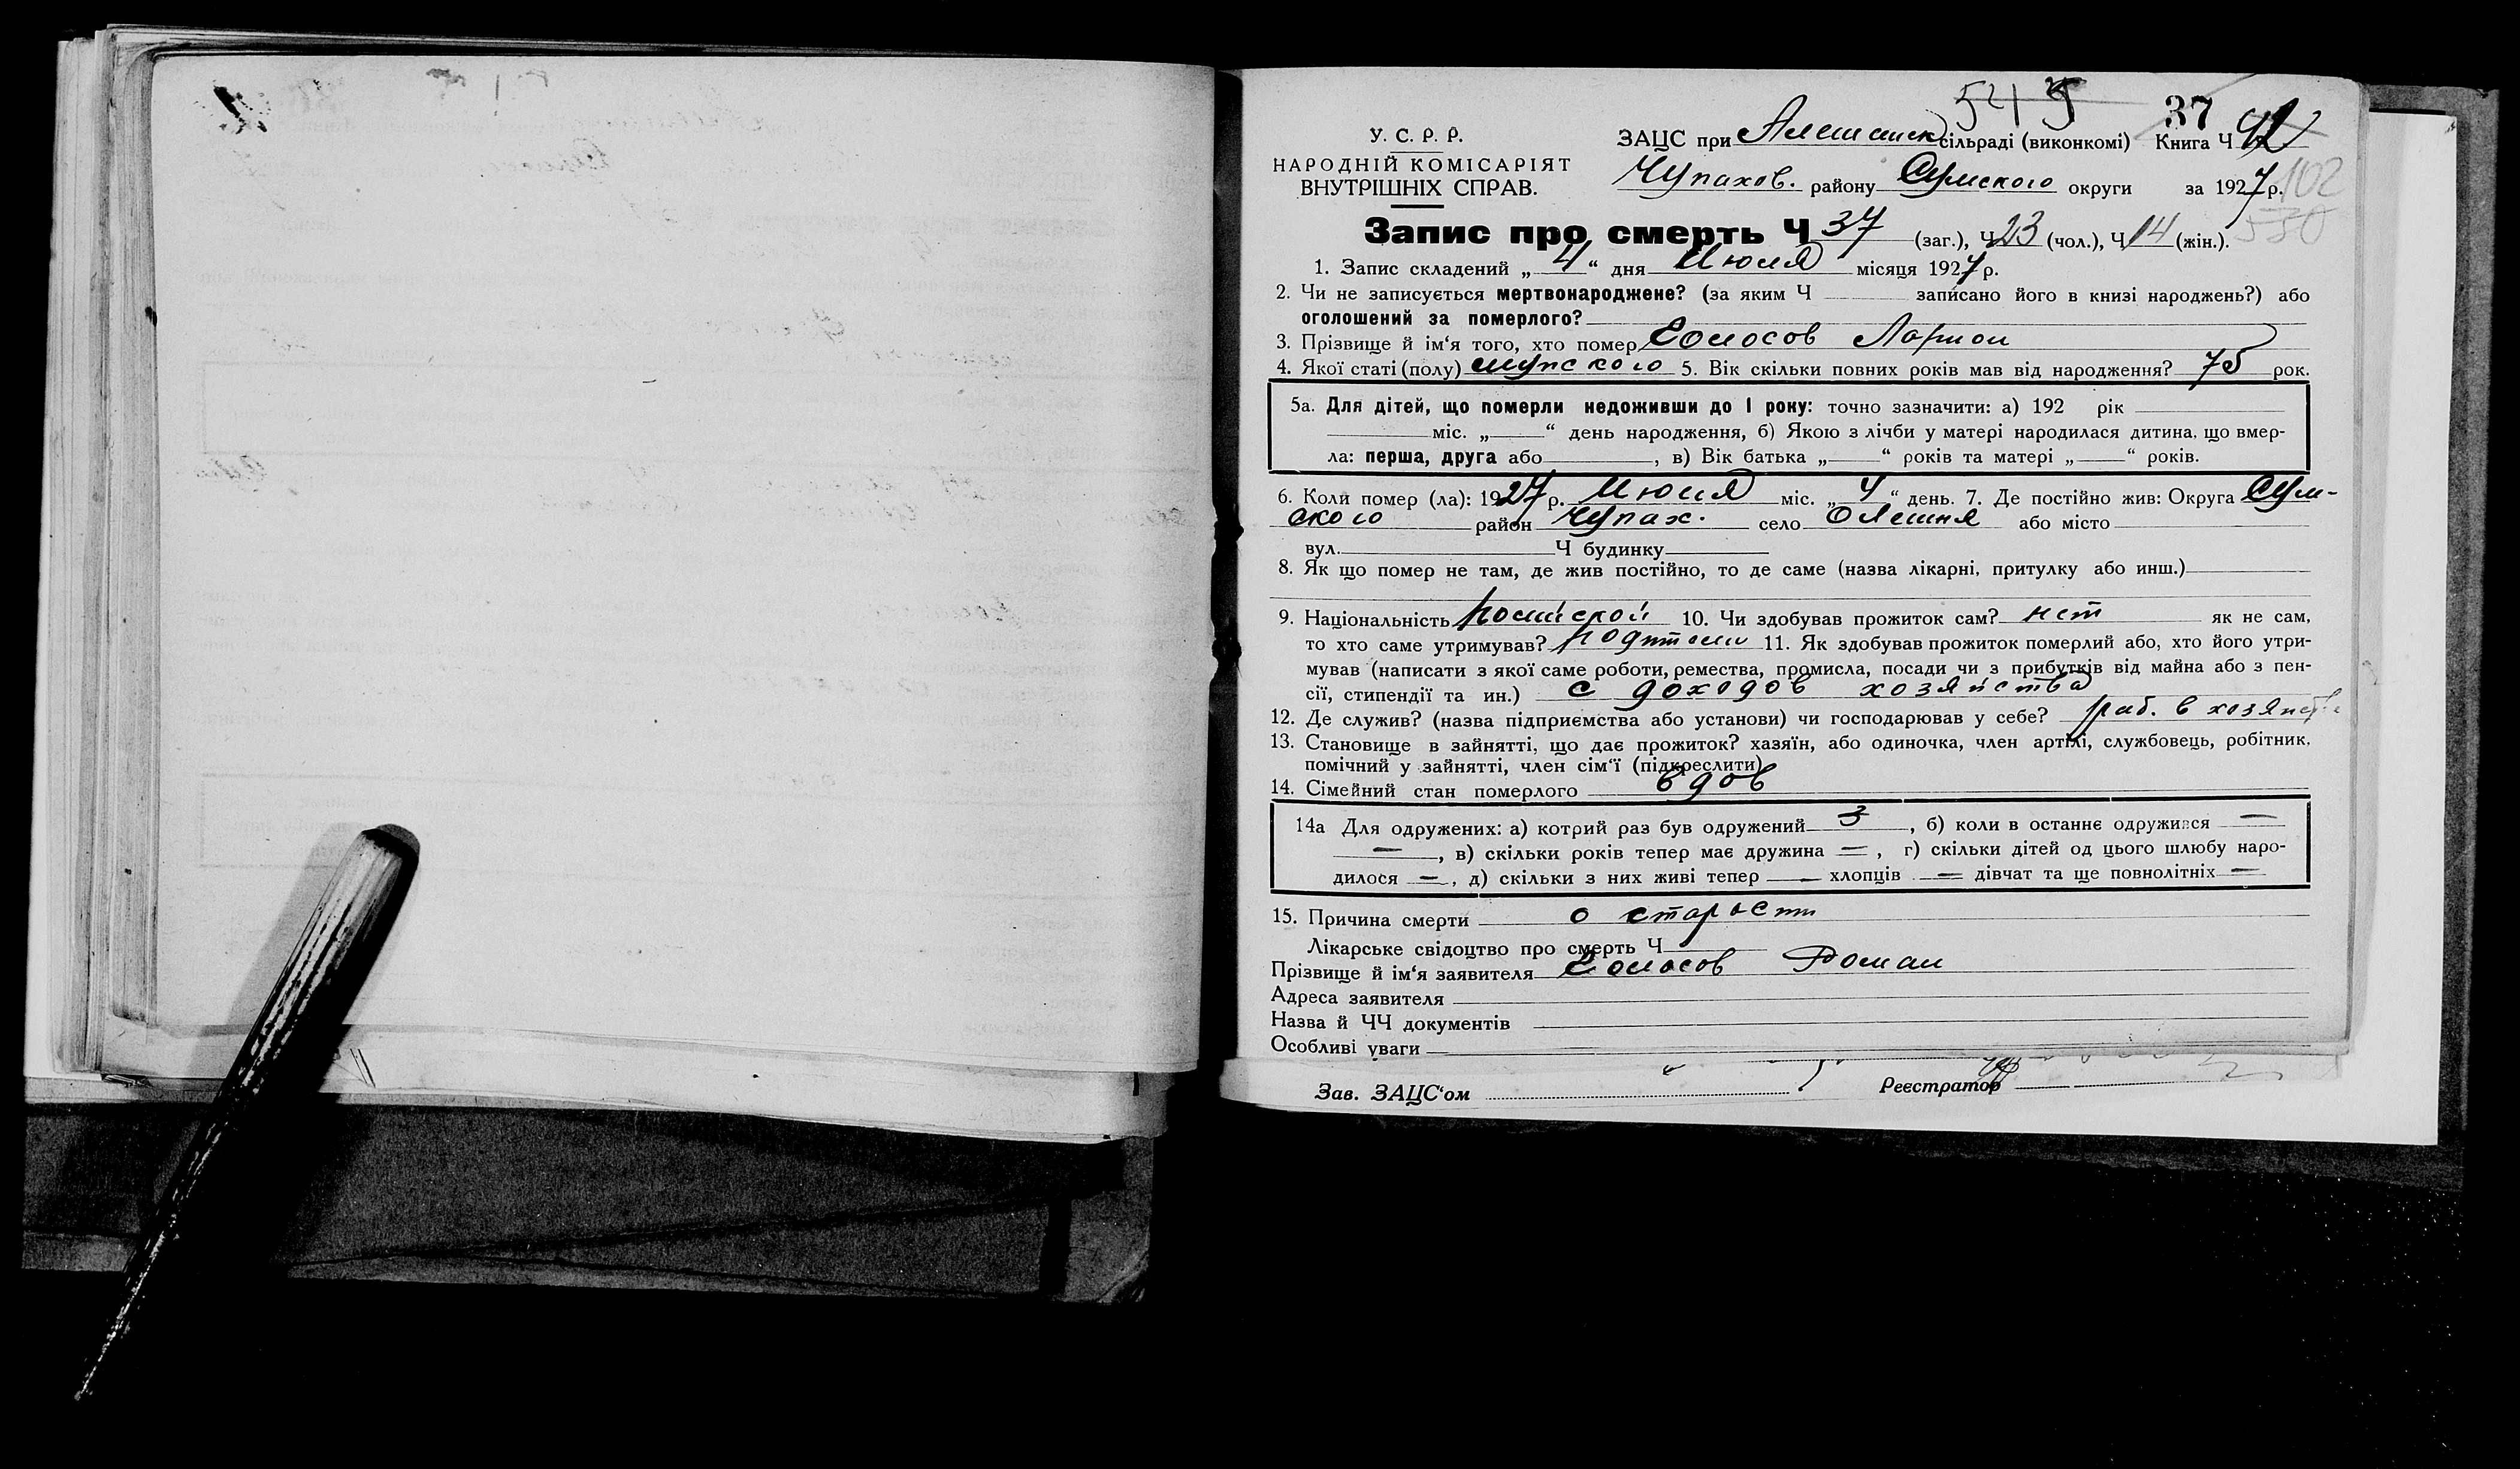 37
У. С. Р. Р.
НАРОДНІЙ КОМІСАРІЯТ
ВНУТРІШНІХ СПРАВ.
ЗАЦС при Алешанск сільраді (виконкомі) Книга Ч
Чупахов. району Сумского округи за 1927 р.
102
530
Запис про смерть Ч 37 (заг.), Ч 23 (чол.), Ч 14 (жін.).
1. Запис складений „ 4 “ дня Июля місяця 1927 р.
2. Чи не записується мертвонароджене? (за яким Ч записано його в книзі народжень?) або
оголошений за померлого?
3. Прізвище й ім‘я того, хто помер Ларион
4. Якої статі (полу) мужского 5. Вік скільки повних років мав від народження? 75 рок.
5а. Для дітей, що померли недоживши до 1 року: точно зазначити: а) 192 рік
міс. „ “ день народження, б) Якою з лічби у матері народилася дитина, що вмер-
ла: перша, друга або , в) Вік батька „ “ років та матері „ “ років.
6. Коли помер (ла): 1927 р. Июля міс. „ 4 “ день. 7. Де постійно жив: Округа Сум-
ского район Чупах. село Олешня або місто
вул. Ч будинку
8. Як що помер не там, де жив постійно, то де саме (назва лікарні, притулку або инш.)
9. Національність 10. Чи здобував прожиток сам? нет як не сам,
то хто саме утримував? 11. Як здобував прожиток померлий або, хто його утри-
мував (написати з якої саме роботи, ремества, промисла, посади чи з прибутків від майна або з пен-
сії, стипендії та ин.) с доходов хозяйства
12. Де служив? (назва підприємства або установи) чи господарював у себе? раб. в
13. Становище в зайнятті, що дає прожиток? хазяїн, або одиночка, член артілі, службовець, робітник,
помічний у зайнятті, член сім‘ї (підкреслити)
14. Сімейний стан померлого вдов
14а Для одружених: а) котрий раз був одружений 3 , б) коли в останнє одружився —
— , в) скільки років тепер має дружина — , г) скільки дітей од цього шлюбу наро-
дилося — , д) скільки з них живі тепер — хлопців — дівчат та ще повнолітніх —
15. Причина смерти о старости
Лікарське свідоцтво про смерть Ч
Прізвище й ім‘я заявителя Роман
Адреса заявителя
Назва й ЧЧ документів
Особливі уваги
Зав. ЗАЦС‘ом Реєстратор